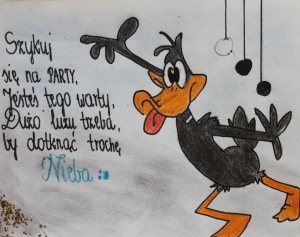 Szykuj
się na PARTY,
Jesteś tego warty,
Dużo luzu trzeba,
by dotknąć trochę
Nieba :